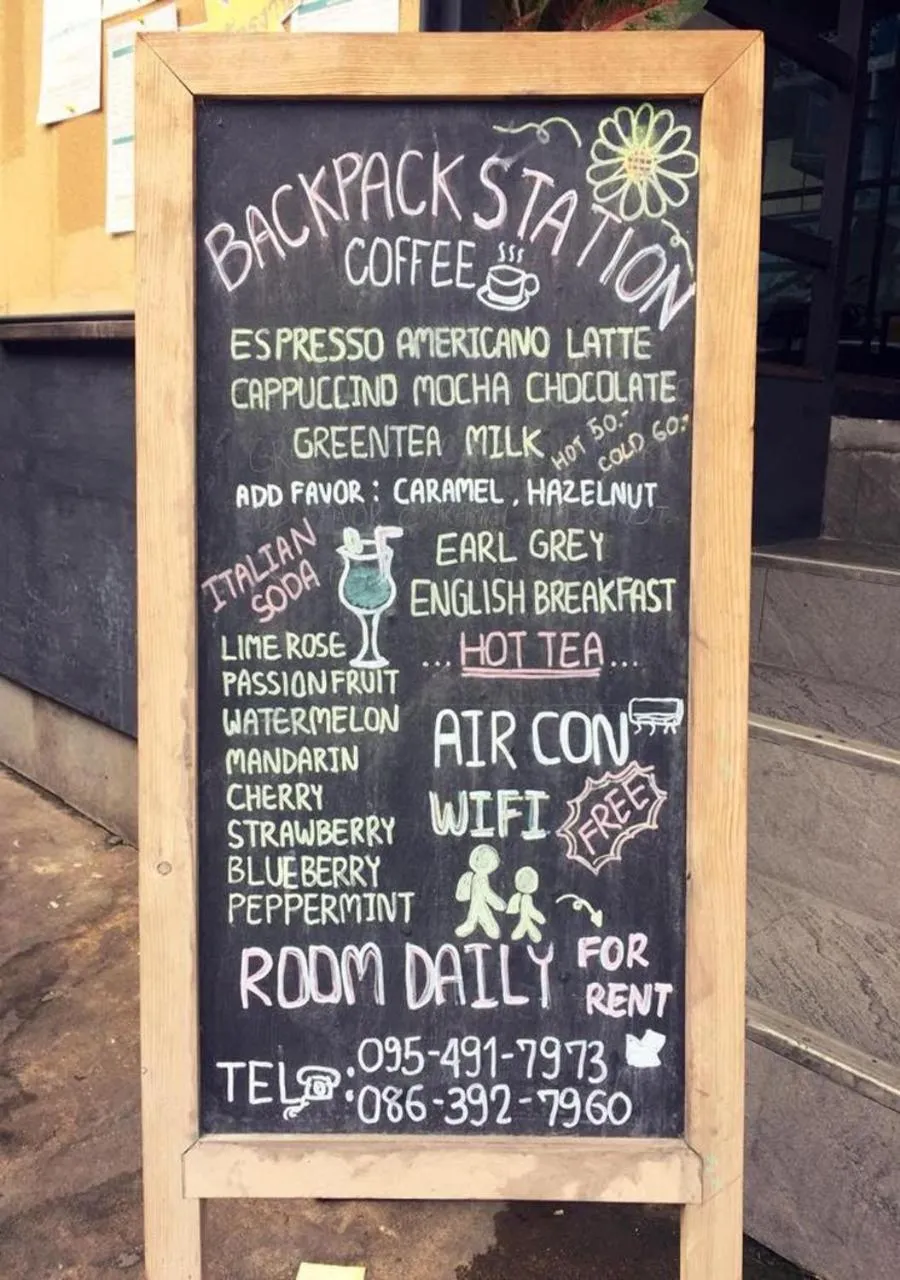 BACKPACK STATION
COFFEE
ESPRESSO AMERICANO LATTE
CAPPUCCINO MOCHA CHOCOLATE
GREENTEA MILK
HOT 50.-
COLD 60.-
ADD FAVOR : CARAMEL , HAZELNUT
ITALIAN
SODA
LIME ROSE
PASSIONFRUIT
WATERMELON
MANDARIN
CHERRY
STRAWBERRY
BLUEBERRY
PEPPERMINT
EARL GREY
ENGLISH BREAKFAST
... HOT TEA ...
AIR CON
WIFI FREE
ROOM DAILY FOR
RENT
TEL : 095-491-7973
: 086-392-7960